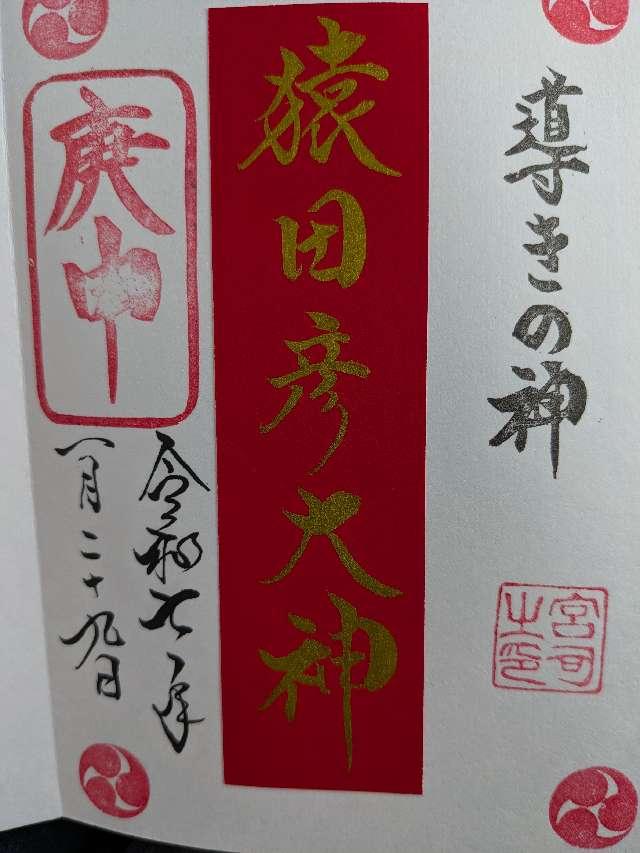 導きの神
宮司之印
猿田彦大神
庚申
令和七年
八月二十九日